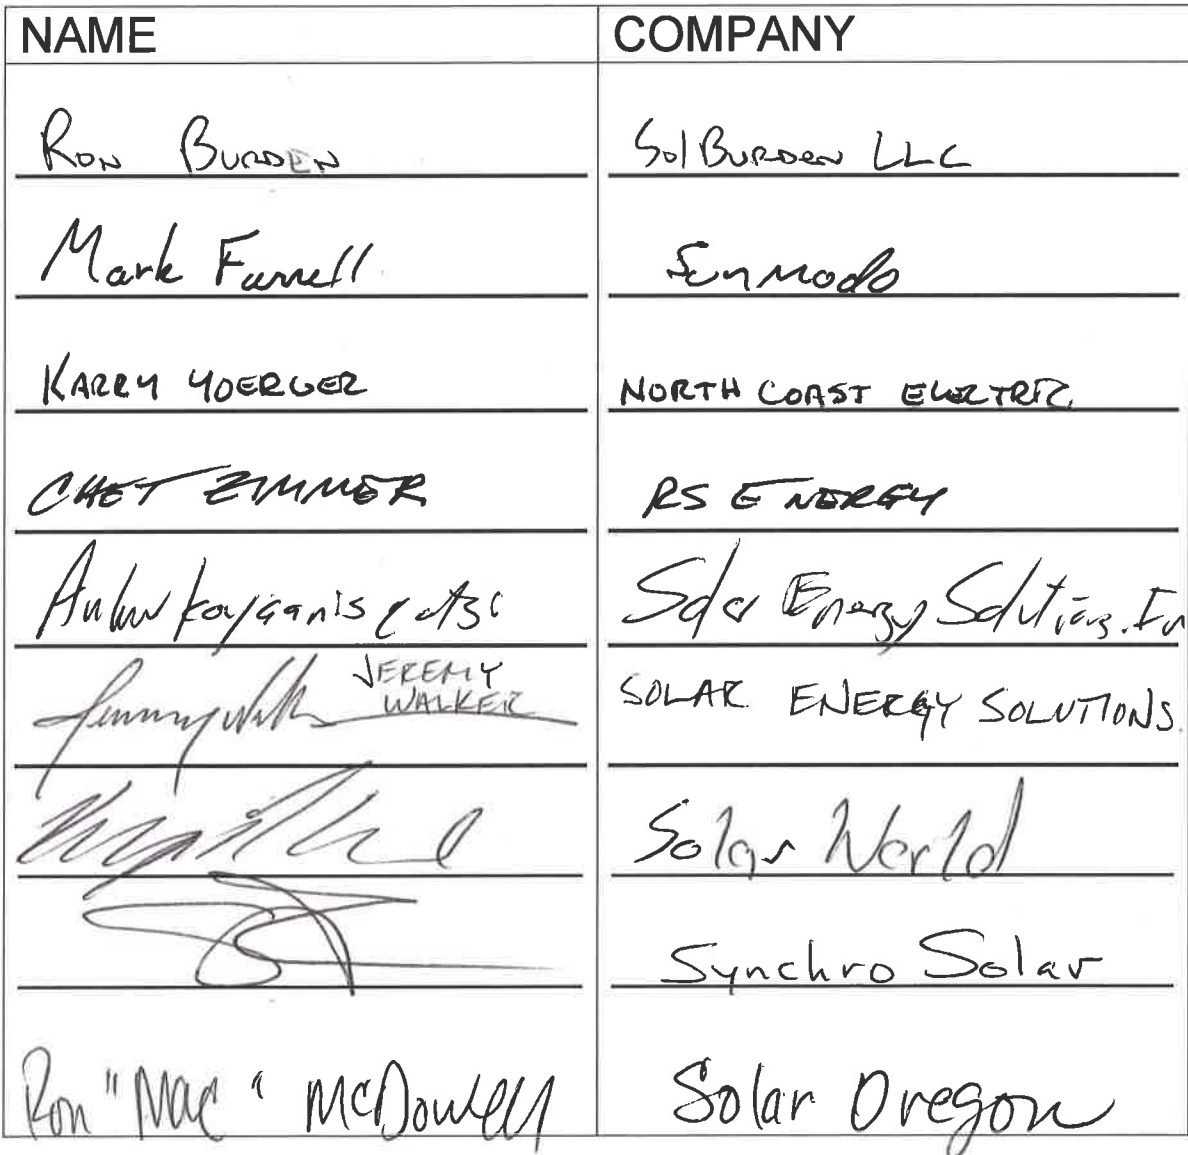 NAME COMPANY
Ron Burden Sol Burden LLC
Mark Farrell SunModo
KARRY YOERGER NORTH COAST ELECTRIC
CHET ZIMMER RS ENERGY
Solar Energy Solutions. In
JEREMY
WALKER SOLAR ENERGY SOLUTIONS.
Solar World
Synchro Solar
Ron "Mac" McDowell Solar Oregon